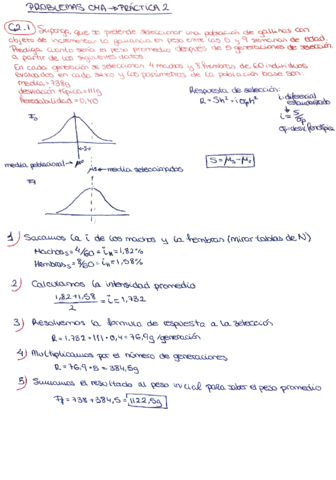 PROBLEMAS CMA → PRÁCTICA 2
C2.1) Suponga que se pretende seleccionar una población de gallinas con
objeto de incrementar la ganancia en peso entre las 5 y 9 semanas de edad.
Prediga cuánto sería el peso promedio después de 5 generaciones de selección
a partir de los siguientes datos:
En cada generación se seleccionan 4 machos y 8 hembras de 60 individuos
evaluados en cada sexo y los parámetros de la población base son:
media = 738g
desviación típica = 111g
heredabilidad = 0,40
Respuesta de selección:
R = Sh² = iσph²
i = diferencial
estandarizado
i = S/σp
σp = desv. fenotípica
media poblacional
μs → media seleccionados
S = μs - μ
1) Sacamos la i de los machos y la hembras (mirar tablas de N)
Machos s = 4/60 = iM = 1,82%
Hembras s = 8/60 = iH = 1,58%
2) Calculamos la intensidad promedio
1,82 + 1,58 / 2 = i = 1,732
3) Resolvemos la fórmula de respuesta a la selección
R = 1,732 · 111 · 0,4 = 76,9g/generación
4) Multiplicamos por el número de generaciones
R = 76,9 · 5 = 384,5g
5) Sumamos el resultado al peso inicial para saber el peso promedio
= 738 + 384,5 = 1122,5g